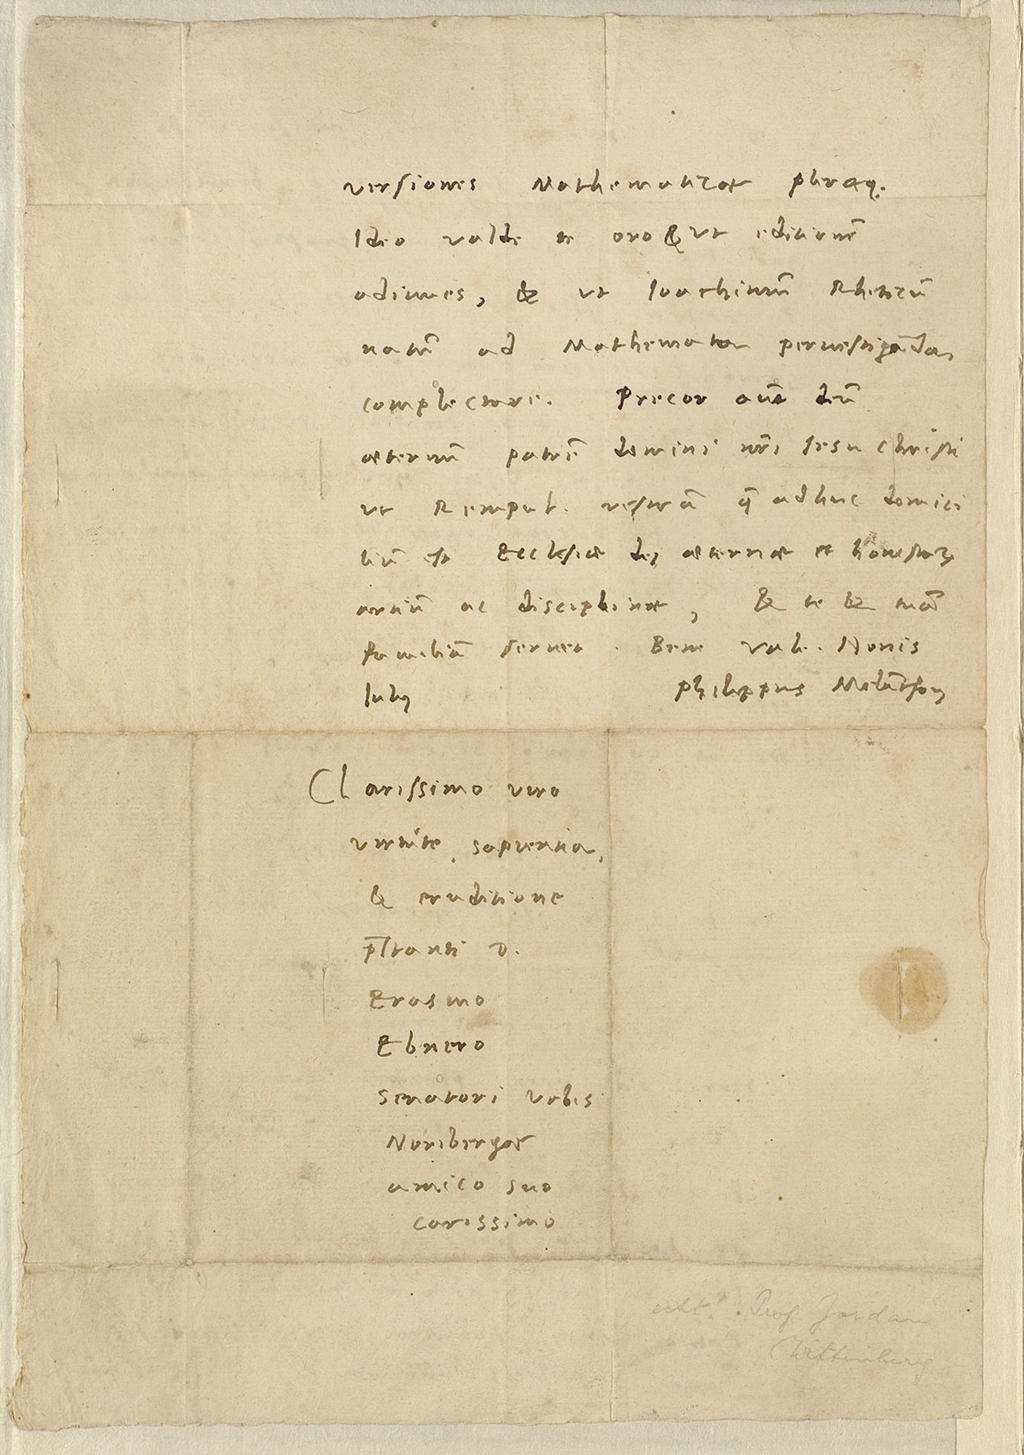 versiones Mathematicae pleraeq.
Ideo valde te oro & vt editionē
adiuues, & vt Ioachimū Rheticū
natū ad Mathemata peruestigāda,
complectare. Precor aūt deū
aeternū patrē domini nr̄i Iesu Christi
vt Rempub. vestrā q̄ adhuc domici
liū est Ecclesiae dei aeternae et honestarꝝ
artiū ac disciplinae, & te & tuā
familiā seruet. Bene vale. Nonis
Iulij Philippus Melāthon
Clarissimo viro
virtute, sapientia,
& eruditione
p̄stanti D.
Erasmo
Ebnero
senatori vrbis
Noribergae
amico suo
carissimo
echt! Prof Jordan
Wittenberg